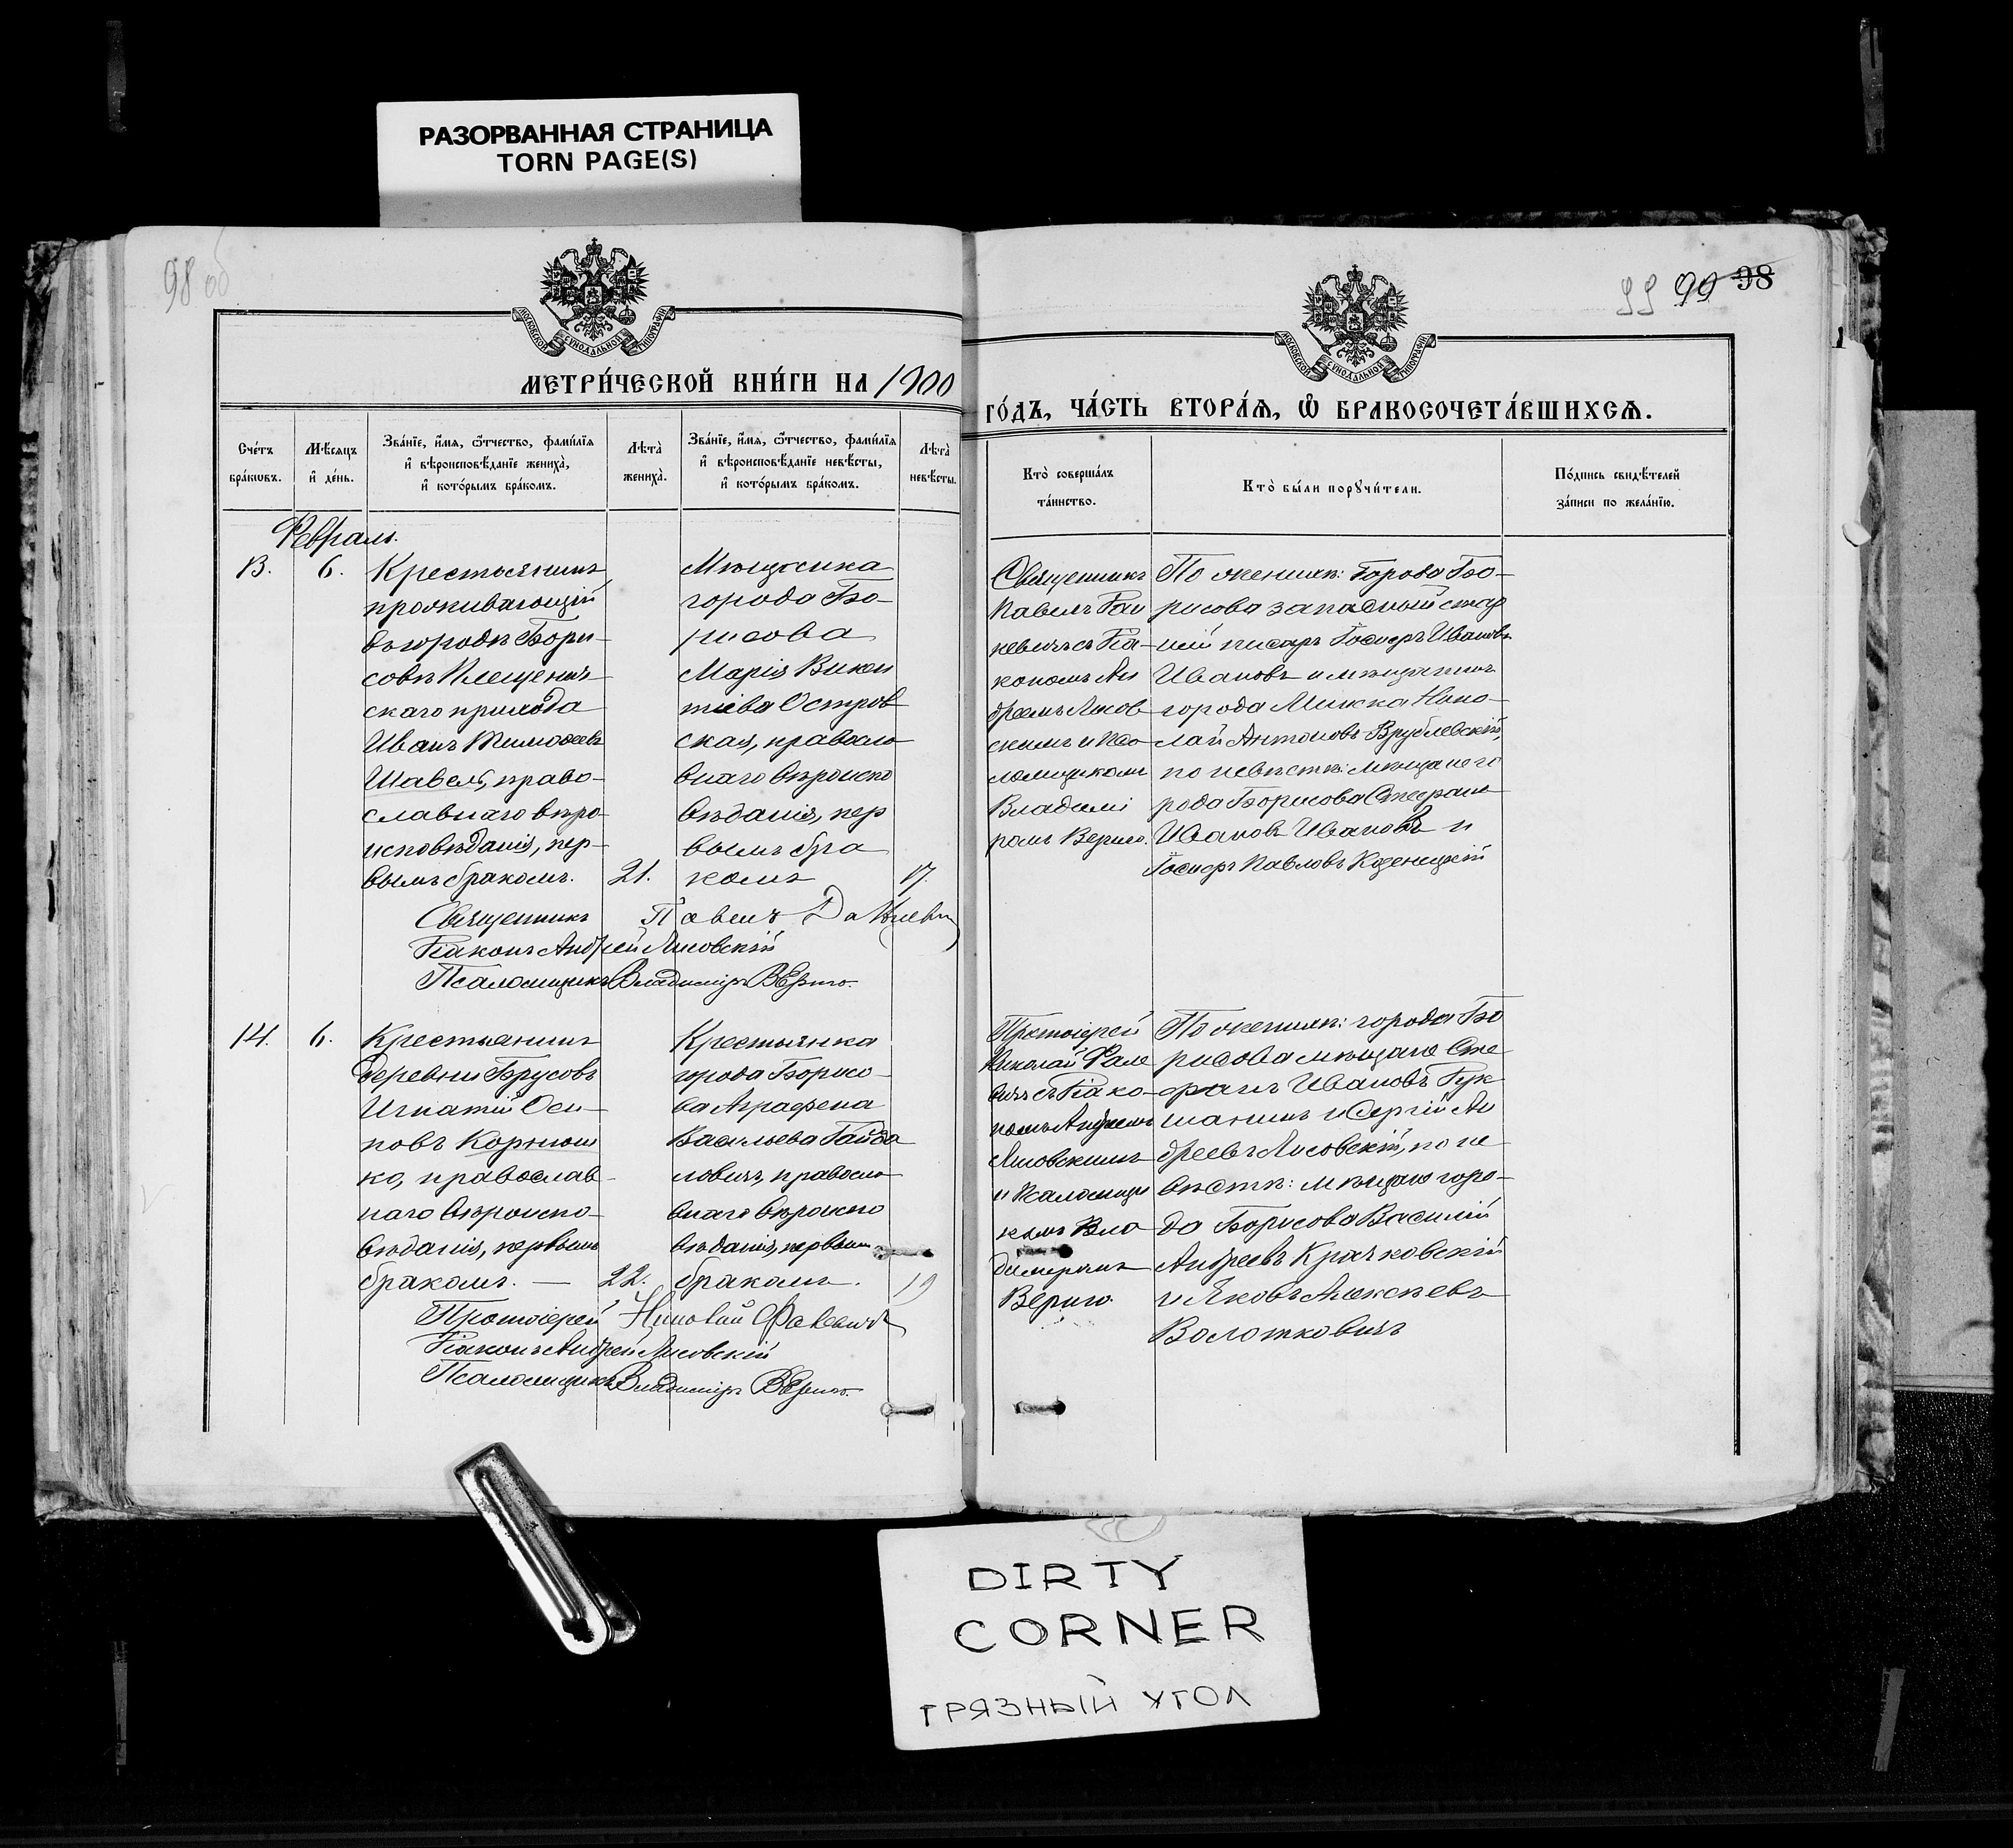 РАЗОРВАННАЯ СТРАНИЦА
TORN PAGE(S)
98 об
99 99 98
МОСКОВСКОЙ СѴНОДАЛЬНОЙ ТИПОГРАФІИ
МОСКОВСКОЙ СѴНОДАЛЬНОЙ ТИПОГРАФІИ
МЕТРИ́ЧЕСКОЙ КНИ́ГИ НА 1900
ГО́ДЪ, ЧА́СТЬ ВТОРА́Ѧ, Ѡ҆ БРАКОСОЧЕТА́ВШИХСѦ.
Сче́тъ
бра́кѡвъ.
Мѣ́сяцъ
и҆ де́нь.
Зва́нїе, и҆́мѧ, ѻ҆́тчество, фами́лїѧ
и҆ вѣроисповѣ́данїе жениха̀,
и҆ кото́рымъ бра́комъ.
Лѣта̀
жениха̀.
Зва́нїе, и҆́мѧ, ѻ҆́тчество, фами́лїѧ
и҆ вѣроисповѣ́данїе невѣ́сты,
и҆ кото́рымъ бра́комъ.
Лѣта̀
невѣ́сты.
Кто̀ соверша́лъ
та́инство.
Кто̀ бы́ли порꙋчи́тели.
По́дпись свидѣ́телей
за́писи по жела́нїю.
Февраль.
13.
6.
Крестьянинъ
проживающій
въ городѣ Бори-
совѣ Плещенич-
скаго прихода
Иванъ Тимоѳеевъ
Шавель, право-
славнаго вѣро-
исповѣданія, пер-
вымъ бракомъ.
21.
Мѣщанка
города Бо-
рисова
Марія Викен
тіева Остров
ская, правосла
внаго вѣроиспо
вѣданія, пер
вымъ бра
комъ
17.
Священникъ
Павелъ
кевичъ съ Діа-
кономъ Ан
дреемъ Лисов
скимъ и Пса
ломщикомъ
Владимі
ромъ Вериго.
По женихѣ: города Бо-
рисова запасный стар
шій писарь Іосифъ Ивановъ
Ивановъ и мѣщанинъ
города Минска Нико-
лай Антоновъ Врублевскій,
по невѣстѣ: мѣщане го
рода Борисова Стефанъ
Ивановъ Ивановъ и
Іосифъ Павловъ Козеницкій
Священникъ Павелъ
Діаконъ Андрей Лисовскій
Псаломщикъ Владиміръ Вериго.
14.
6.
Крестьянинъ
деревни Брусовъ
Игнатій Оси-
повъ Корнюш
ко, православ-
наго вѣроиспо-
вѣданія, первымъ
бракомъ. —
22.
Крестьянка
города Борисо-
ва Аграфена
Васильева Гайда
ловичъ, правосла
внаго вѣроиспо
вѣданія, первым
бракомъ.
19
Протоіерей
Николай Фале
вичъ съ Діако-
номъ Андреемъ
Лисовскимъ
и Псаломщи
комъ Вла
диміромъ
Вериго.
По женихѣ: города Бо
рисова мѣщане Сте
фанъ Ивановъ Гук
шанинъ и Сергій Ан
дреевъ Лисовскій, по не
вѣстѣ: мѣщане горо-
да Борисова Василій
Андреевъ Крачковскій
и Яковъ Алексѣевъ
Волотковичъ
Протоіерей Николай Фалевичъ
Діаконъ Андрей Лисовскій
Псаломщикъ Владиміръ Вериго.
DIRTY
CORNER
ГРЯЗНЫЙ УГОЛ